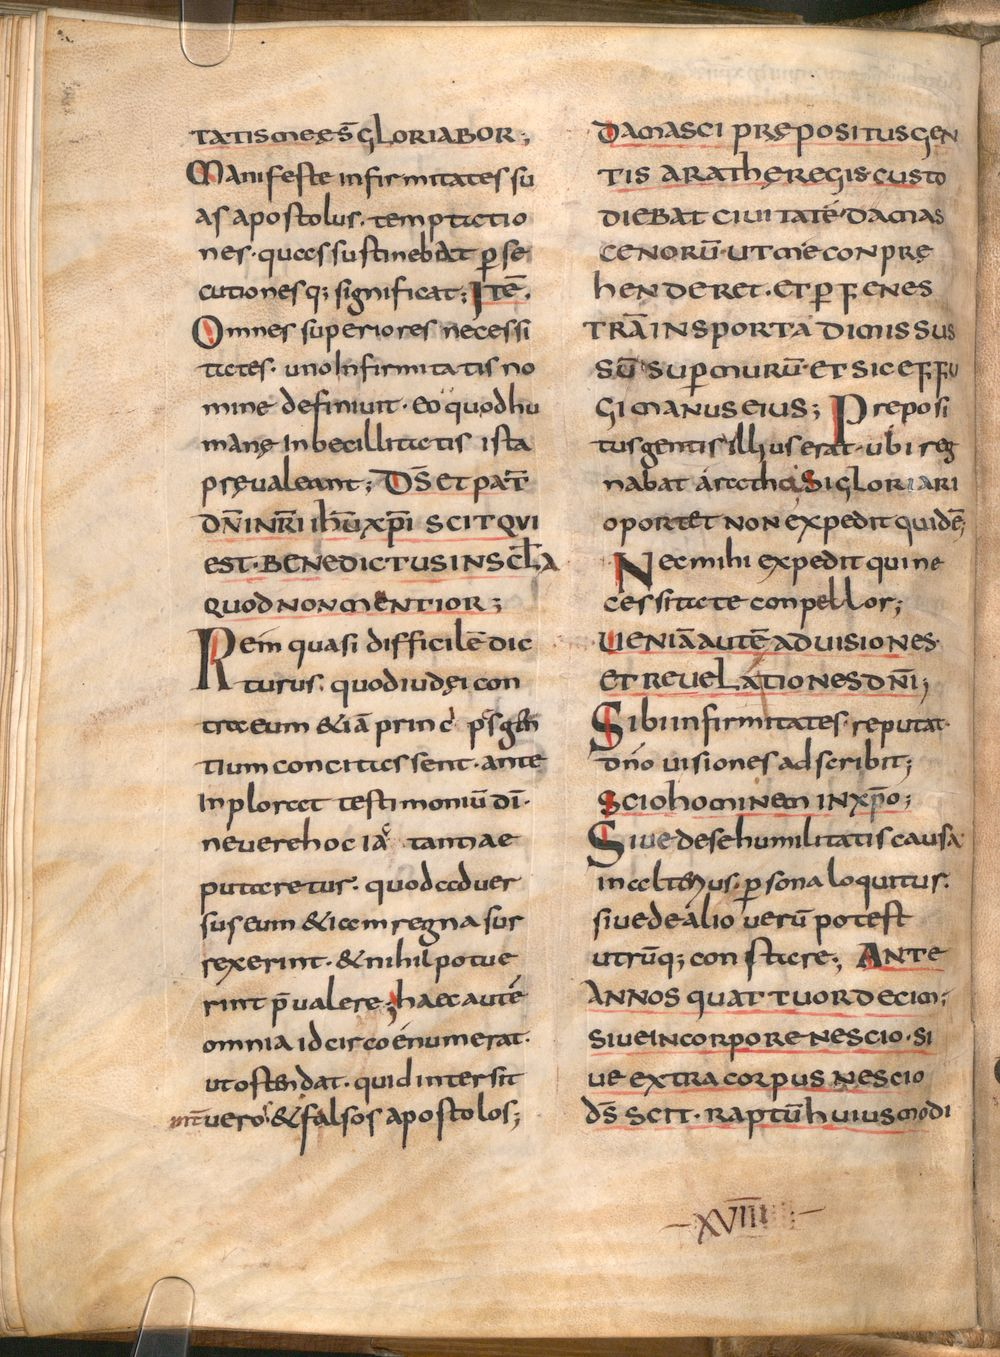 TATISMEĘ S̄ GLORIABOR;
Manifeste infirmitates su
as apostolus. temptatio
nes. quas sustinebat perse
cutionesq; significat; ITĒ.
Omnes superiores necessi
tates. uno Infirmitatis no
mine definiuit. eo quod hu
manę Inbecillitatis ista
pręualeant; D̄S ET PAT̄
DN̄I NR̄I IHŪ XP̄I SCIT QVI
EST. BENEDICTUS IN SC̄LA
QUOD NON MENTIOR;
Rem quasi difficilē dic
turus. quod iudęi con
tra eum &iā princ p̄s gen
tium concitassent. ante
Inploret testimoniū dī.
ne uere hoc ia tantae
putaretur. quod aduer
sus eum &iam regna sur
rexerint. & nihil potue
rint p̄ualere; haec autē
omnia idcirco enumerat.
ut ostendat. quid intersit
int̄ uero & falsos apostolos;
DAMASCI PRĘPOSITUS GEN
TIS ARATHĘ REGIS CUSTO
DIEBAT CIUITATĒ DAMAS
CENORŪ. UT ME CONPRĘ
HENDERET. ET P̄ FENES
TRĀ IN SPORTA DIMISSUS
SŪ SUP̄ MURŪ. ET SIC EFFU
GI MANUS EIUS; Preposi
tus gentis illius erat. ubi reg
nabat aretha; SI GLORIARI
OPORTET NON EXPEDIT QUIDĒ;
Nec mihi expedit qui ne
cessitate conpellor;
UENIĀ AUTĒ AD UISIONES
ET REUELATIONES DN̄I;
Sibi infirmitates reputat.
dn̄o uisiones adscribit;
SCIO HOMINEM IN XP̄O;
Siue de se humilitatis causa
in alterius. p̄sona loquitur.
siue de alio uerū potest
utrūq; constare; ANTE
ANNOS QUATTUORDECIM;
SIUE IN CORPORE NESCIO. SI
UE EXTRA CORPUS NESCIO
D̄S SCIT. RAPTŪ HUIUSMODI
XVIIII